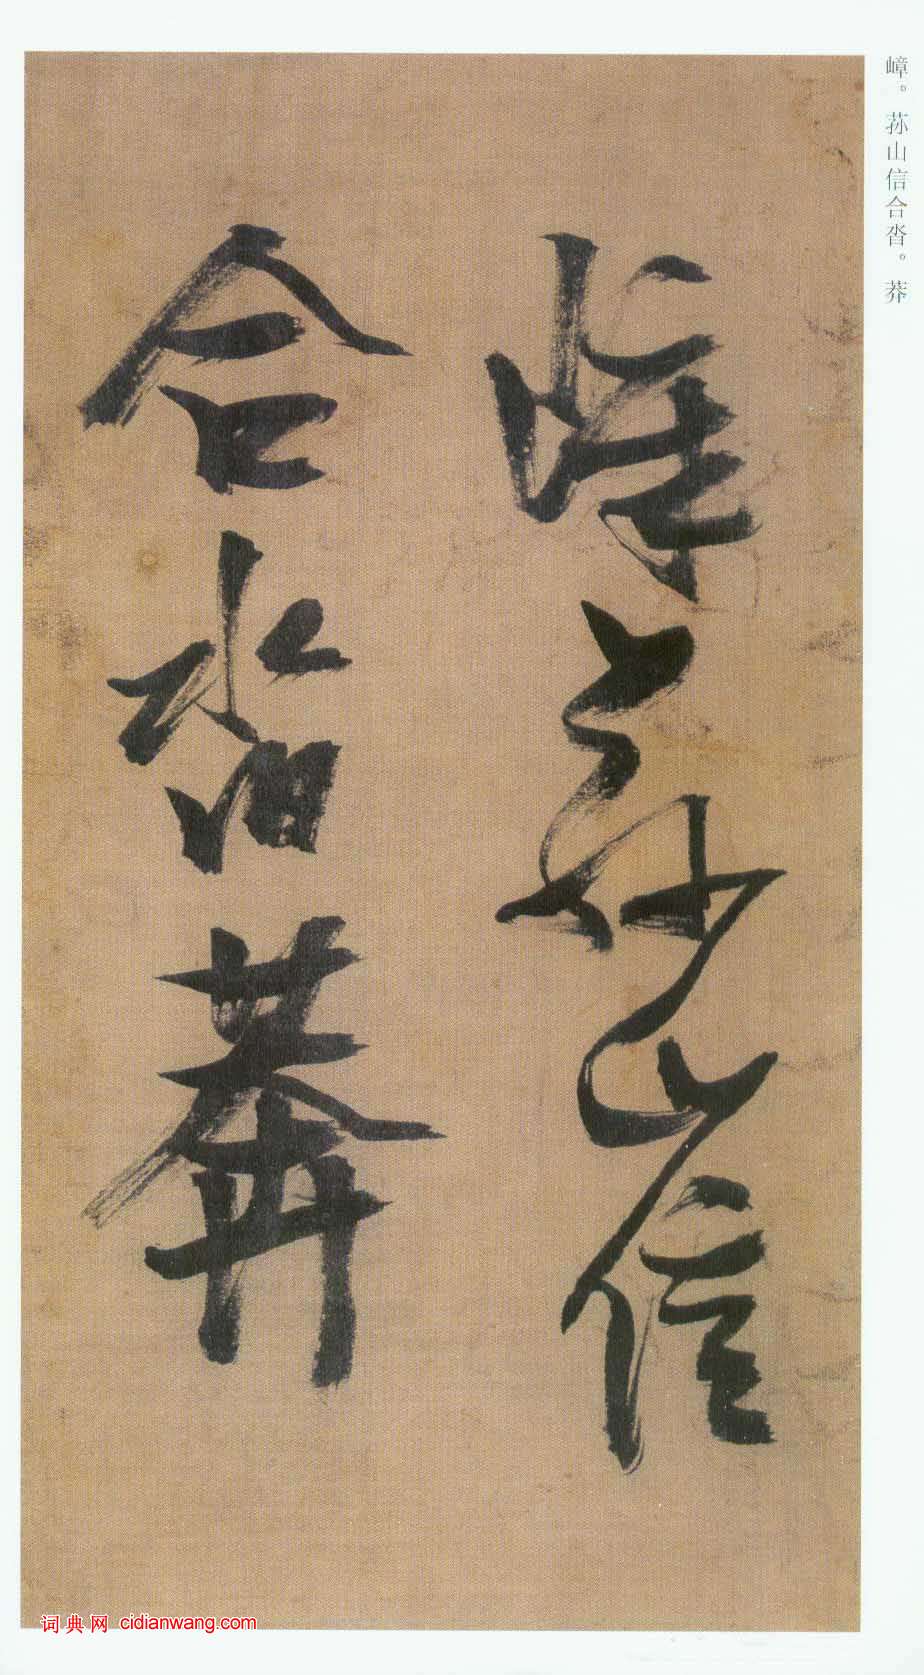 嶂。荪山信合沓。莽
嶂荪山信
合沓莽
词典网 cidianwang.com